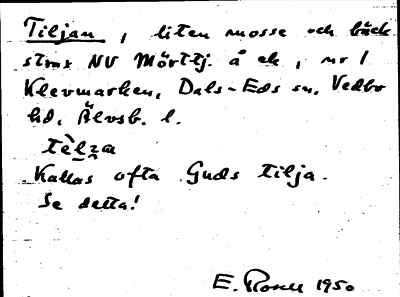 Tiljan, liten mosse och bäck
strax NV Mörttj. å ek, nr 1
Klevmarken, Dals-Eds sn, Vedbo
hd, Älvsb. l.
Kallas ofta Guds tilja.
Se detta!
E. 1950